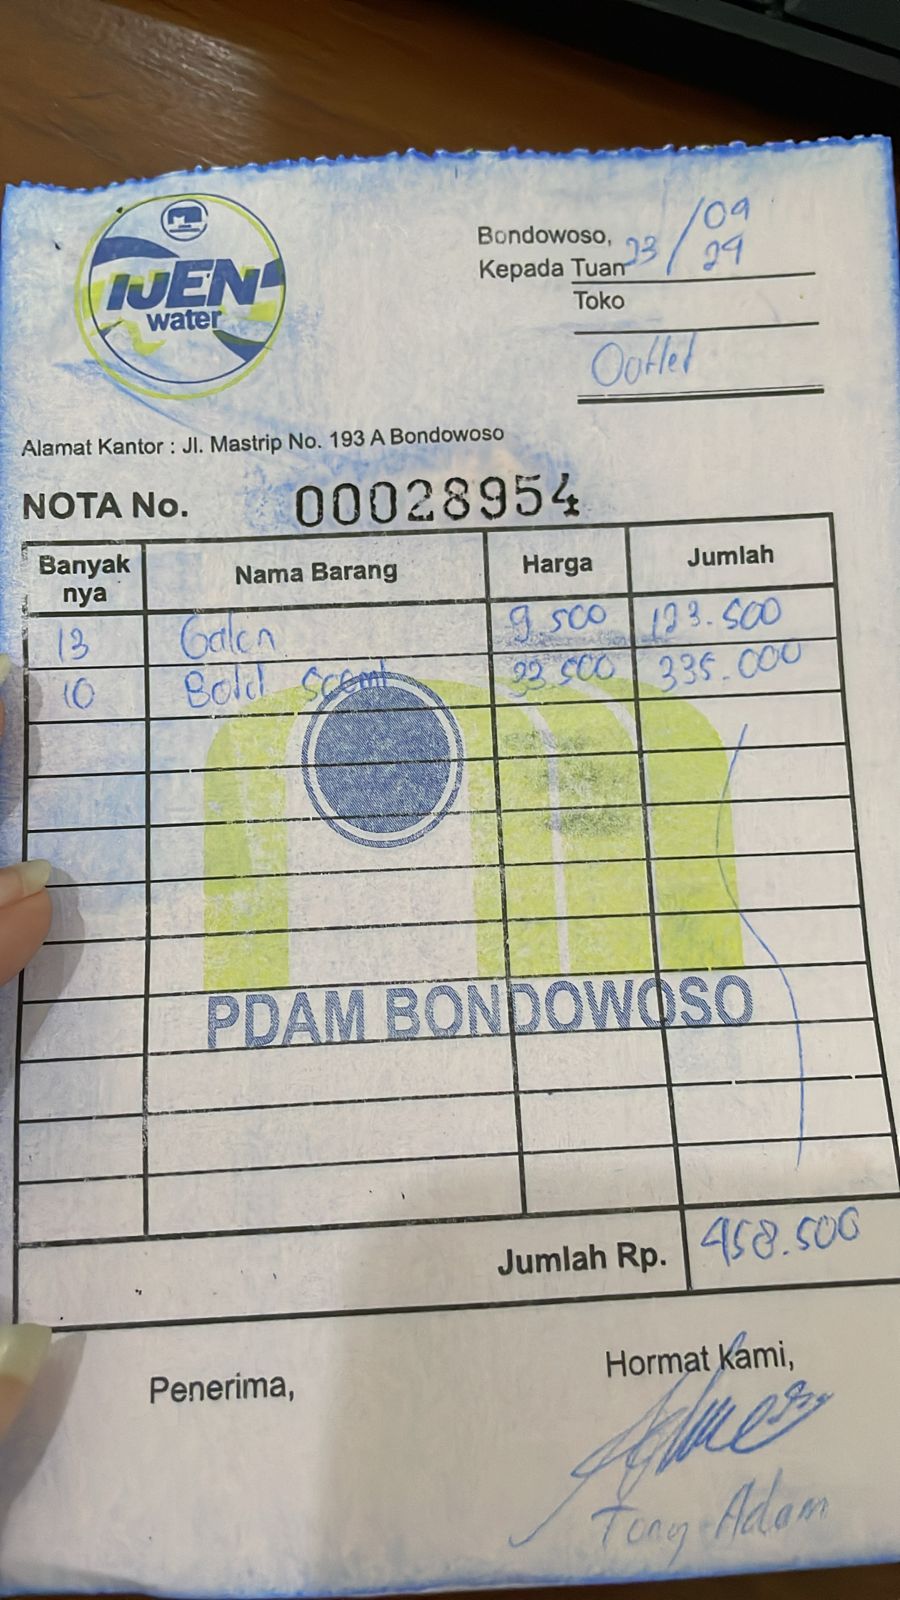 IJEN
water
Bondowoso, 23/09
Kepada Tuan 24
Toko
Outlet
Alamat Kantor : Jl. Mastrip No. 193 A Bondowoso
NOTA No. 00028954
Banyak nya Nama Barang Harga Jumlah
13 Galon 9.500 123.500
10 Botol 500ml 33.500 335.000
PDAM BONDOWOSO
Jumlah Rp. 458.500
Penerima, Hormat kami,
Tony Adam